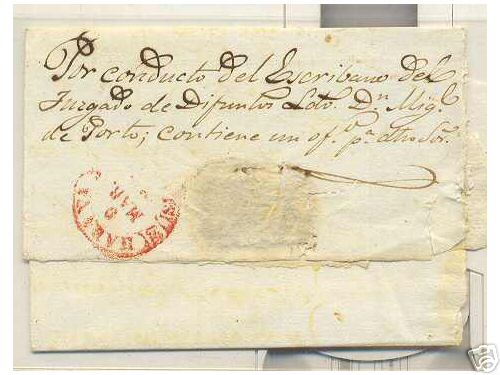 Por conducto del Escribano del
Juzgado de Difuntos Ldo. Dn. Migl.
de Porto; contiene un of.º pa. dho Sor.
HABANA
MAR
9